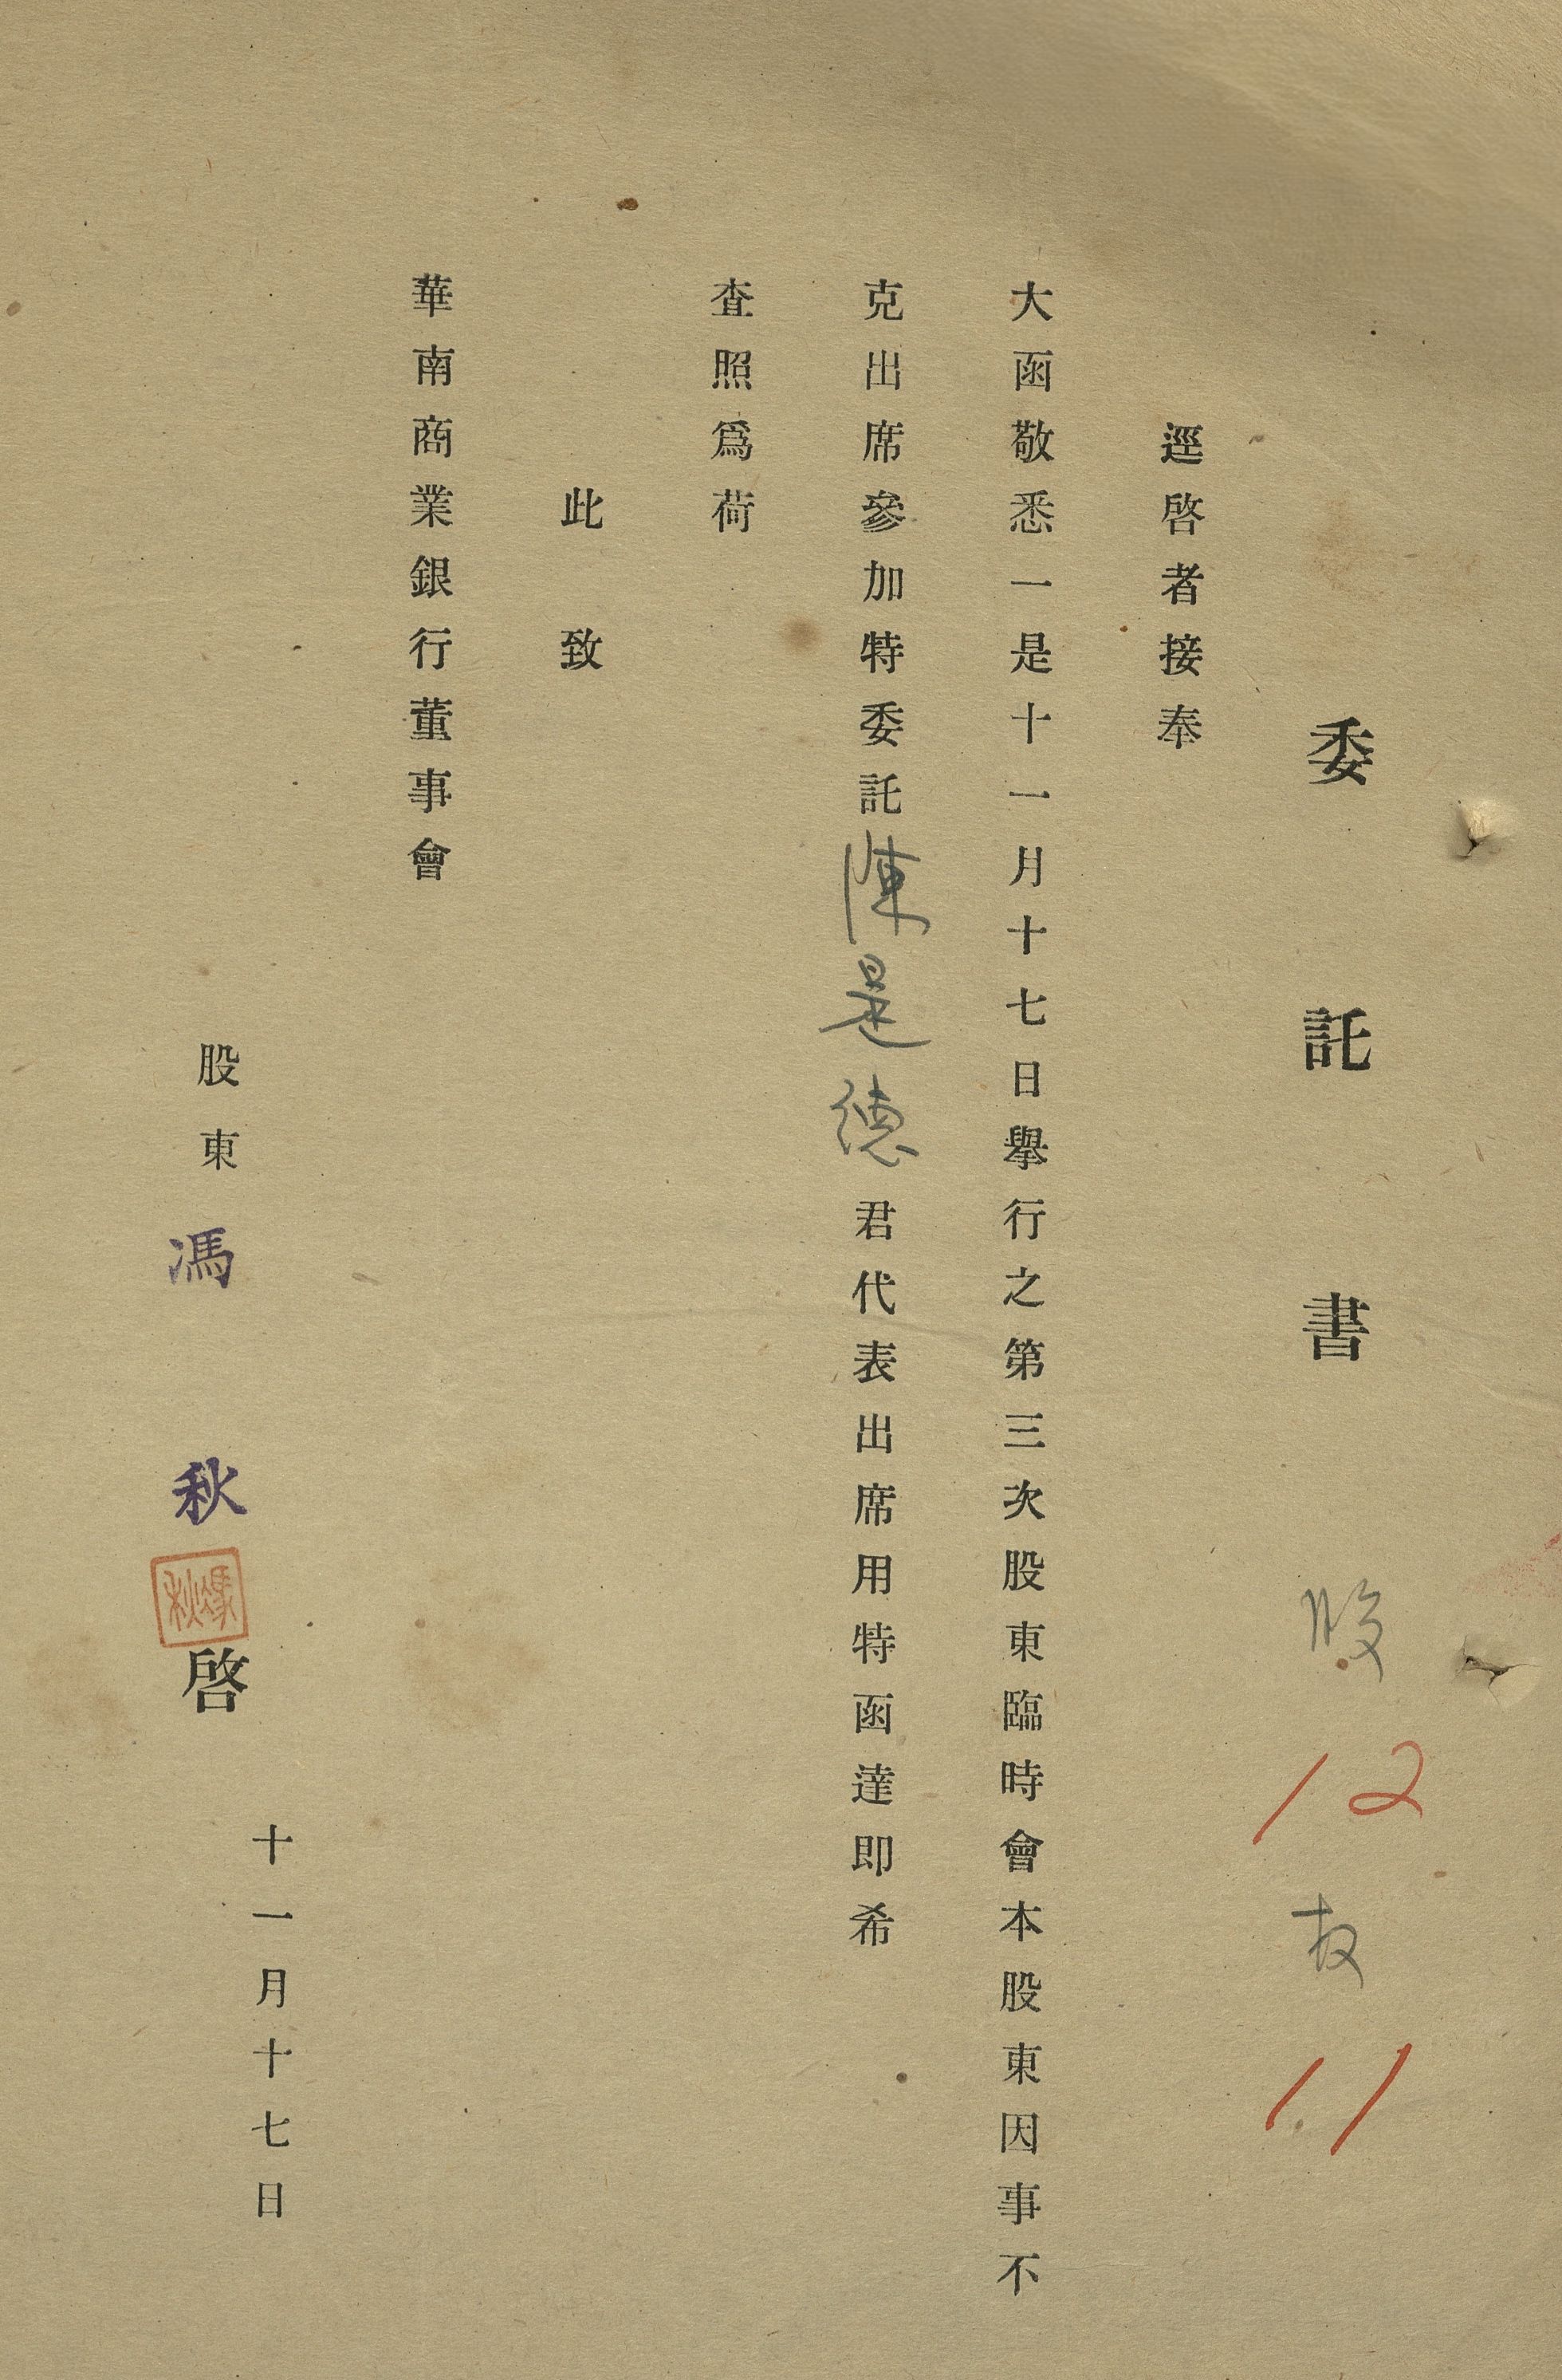 委託書 股12权11
逕啓者接奉
大函敬悉一是十一月十七日舉行之第三次股東臨時會本股東因事不
克出席參加特委託陳是德君代表出席用特函達即希
查照爲荷
此致
華南商業銀行董事會
股東馮秋啓
馮秋
十一月十七日